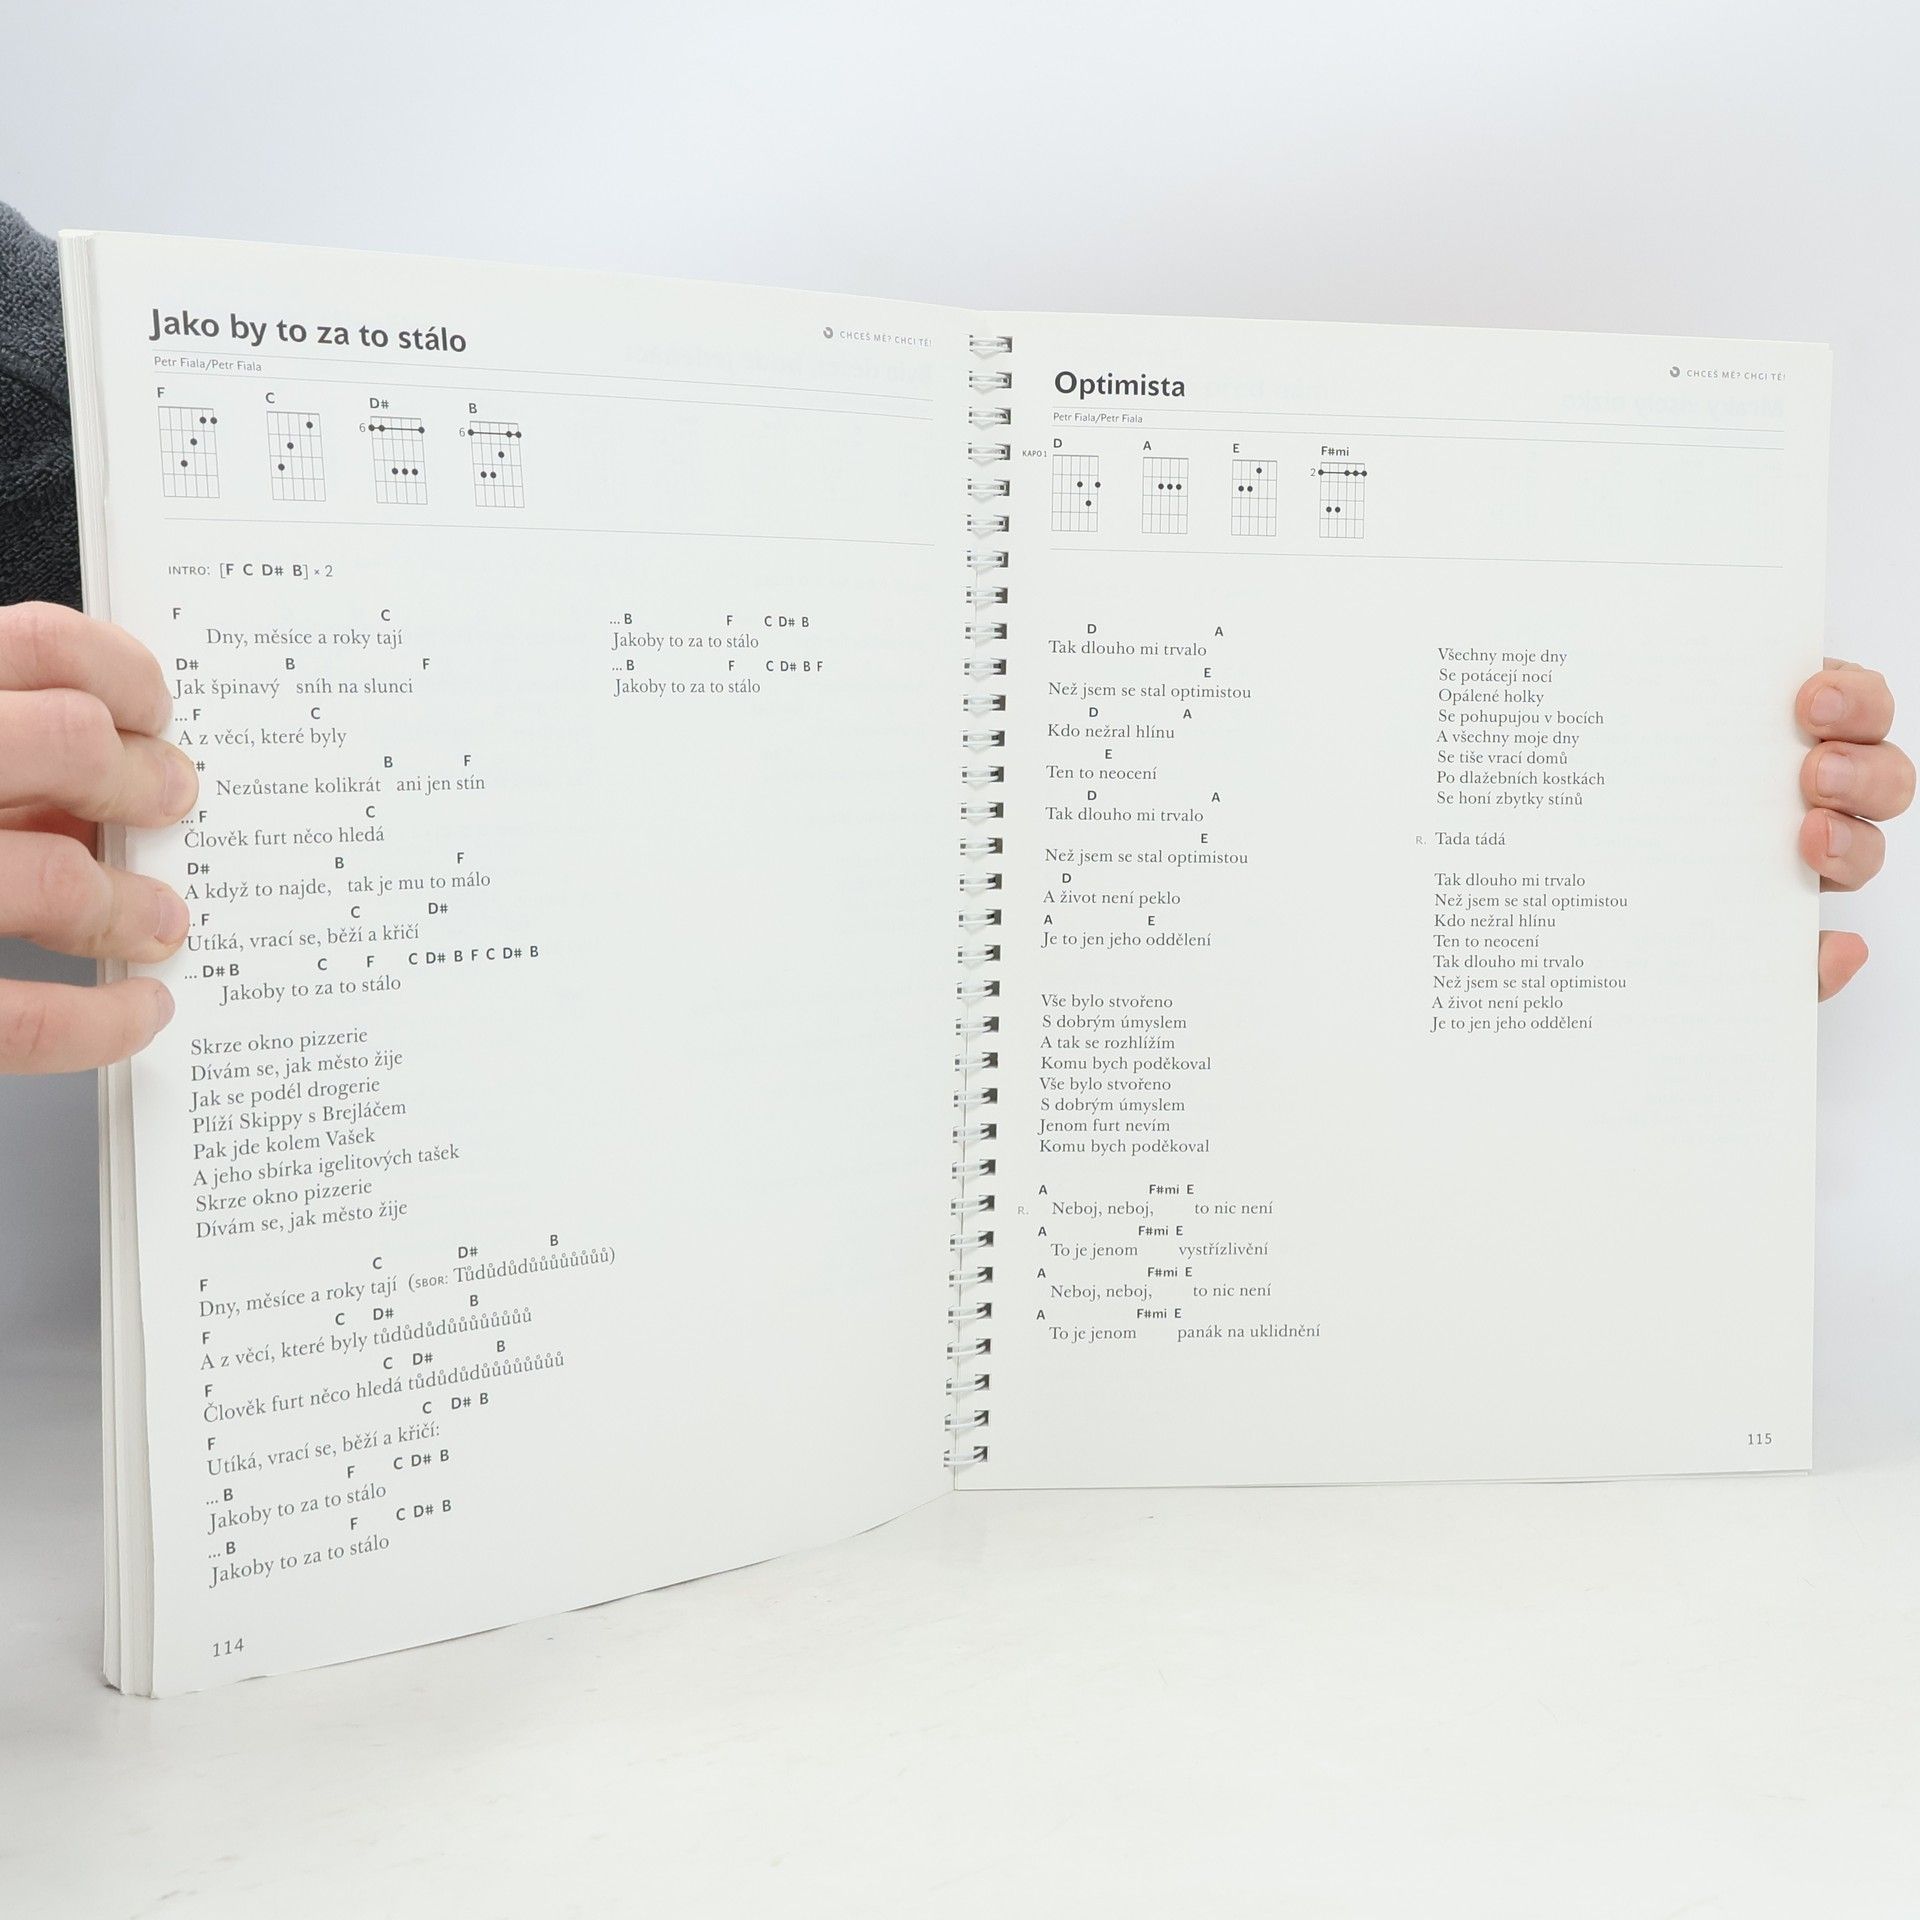 Jako by to za to stálo
CHCEŠ MĚ? CHCI TĚ!
Petr Fiala/Petr Fiala
F C D# B
6 6
INTRO: [F C D# B] × 2
F C
Dny, měsíce a roky tají
D# B F
Jak špinavý sníh na slunci
... F C
A z věcí, které byly
# B F
Nezůstane kolikrát ani jen stín
... F C
Člověk furt něco hledá
D# B F
A když to najde, tak je mu to málo
.. F C D#
Utíká, vrací se, běží a křičí
... D# B C F C D# B F C D# B
Jakoby to za to stálo
Skrze okno pizzerie
Dívám se, jak město žije
Jak se podél drogerie
Plíží Skippy s Brejláčem
Pak jde kolem Vašek
A jeho sbírka igelitových tašek
Skrze okno pizzerie
Dívám se, jak město žije
F C D# B
Dny, měsíce a roky tají (SBOR: Tůdůdůdůůůůůůůů)
F C D# B
A z věcí, které byly tůdůdůdůůůůůůůů
F C D# B
Člověk furt něco hledá tůdůdůdůůůůůůůů
F C D# B
Utíká, vrací se, běží a křičí:
... B F C D# B
Jakoby to za to stálo
... B F C D# B
Jakoby to za to stálo
... B F C D# B
Jakoby to za to stálo
... B F C D# B F
Jakoby to za to stálo
114
Optimista
CHCEŠ MĚ? CHCI TĚ!
Petr Fiala/Petr Fiala
KAPO 1 D A E F#mi
2
D A
Tak dlouho mi trvalo
E
Než jsem se stal optimistou
D A
Kdo nežral hlínu
E
Ten to neocení
D A
Tak dlouho mi trvalo
E
Než jsem se stal optimistou
D
A život není peklo
A E
Je to jen jeho oddělení
Vše bylo stvořeno
S dobrým úmyslem
A tak se rozhlížím
Komu bych poděkoval
Vše bylo stvořeno
S dobrým úmyslem
Jenom furt nevím
Komu bych poděkoval
A F#mi E
R. Neboj, neboj, to nic není
A F#mi E
To je jenom vystřízlivění
A F#mi E
Neboj, neboj, to nic není
A F#mi E
To je jenom panák na uklidnění
Všechny moje dny
Se potácejí nocí
Opálené holky
Se pohupujou v bocích
A všechny moje dny
Se tiše vrací domů
Po dlažebních kostkách
Se honí zbytky stínů
R. Tada tádá
Tak dlouho mi trvalo
Než jsem se stal optimistou
Kdo nežral hlínu
Ten to neocení
Tak dlouho mi trvalo
Než jsem se stal optimistou
A život není peklo
Je to jen jeho oddělení
115